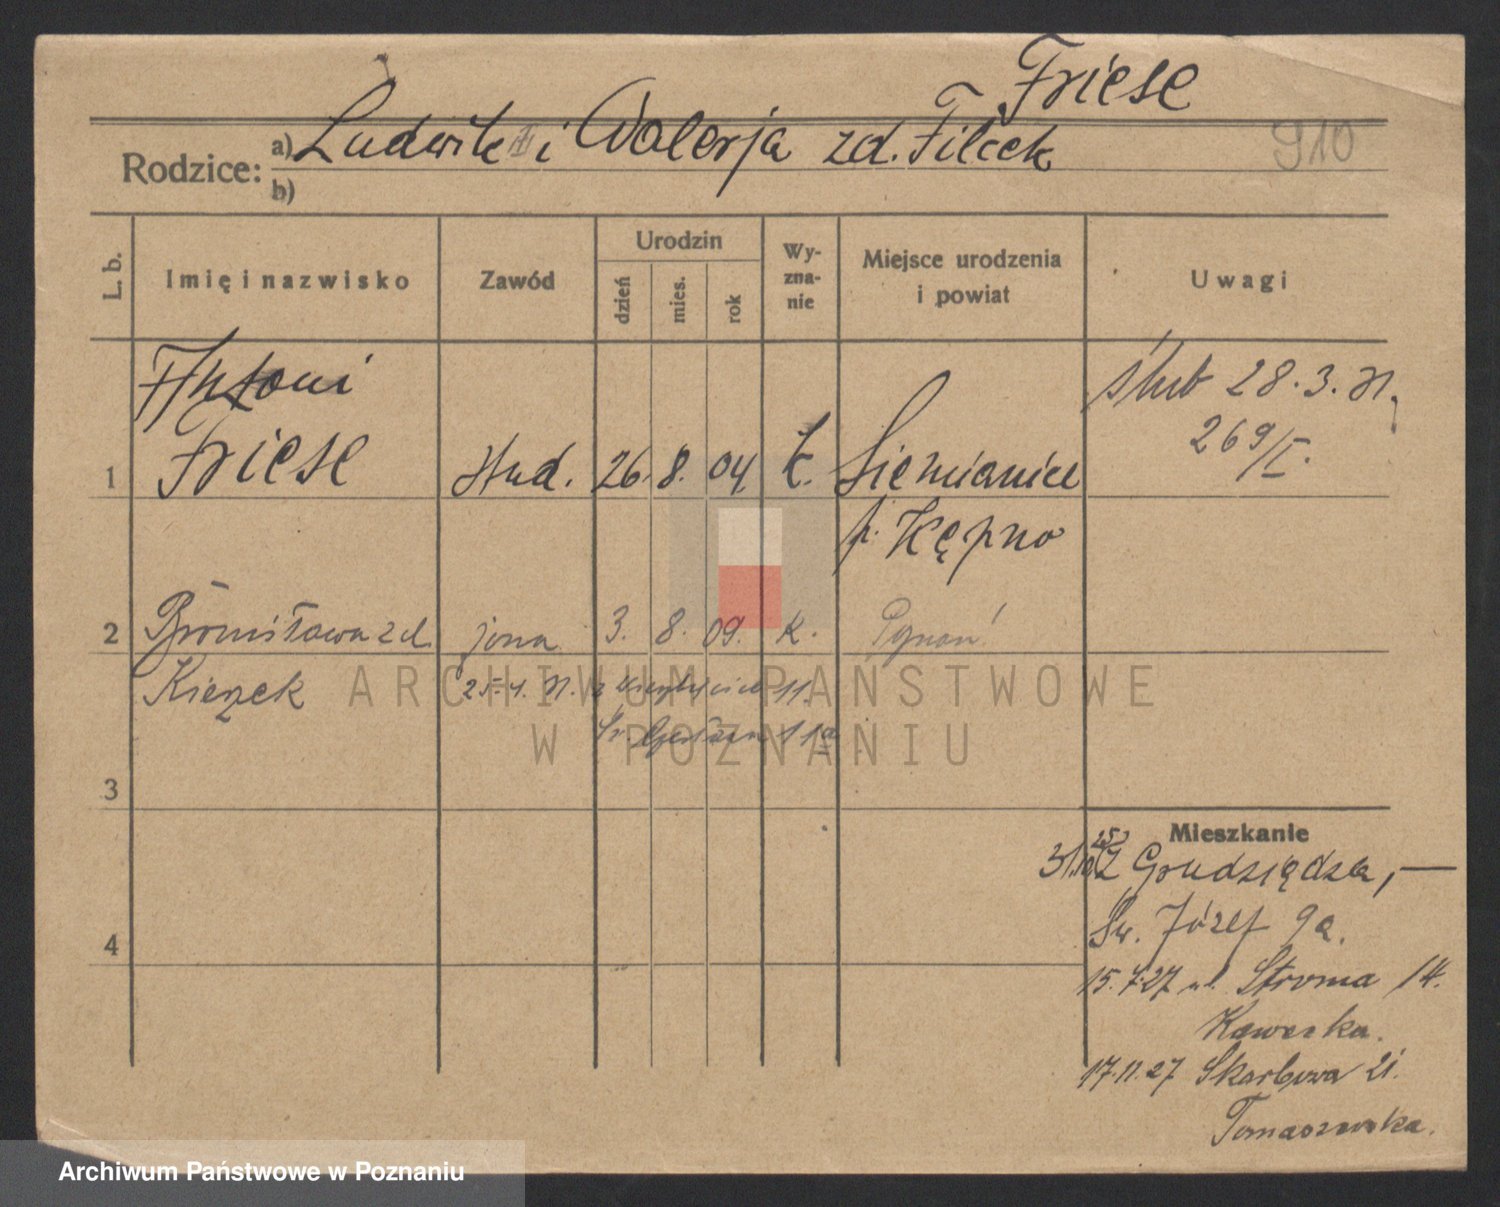 Friese
Rodzice: a) Ludwik i Walerja zd. Filcek 910
b)
L. b. Imię i nazwisko Zawód Urodzin dzień mies. rok Wyznanie Miejsce urodzenia i powiat Uwagi
Antoni ślub 28.3.31.
1 Friese stud. 26. 8. 04 k. Siemianice 269/I.
p. Kępno
2 Bronisława zd. żona 3. 8. 09. k. Poznań
Kierzek 25.4.31. 11.
3
Mieszkanie
Grudziądzka, —
4 Św. Józef 9a.
15.7.27 ul. Stroma 14.
Kawecka.
17.11.27 Skarbowa 21.
Tomaszewska.
ARCHIWUM PAŃSTWOWE
W POZNANIU
Archiwum Państwowe w Poznaniu